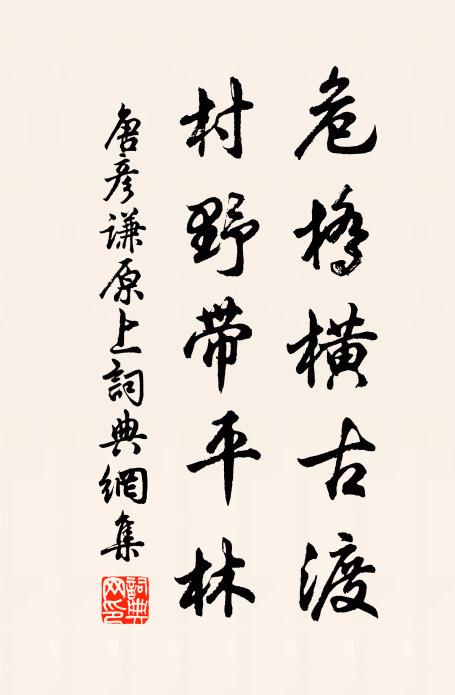 危橋橫古渡
村野帶平林
唐彥謙原上詞典網集
詞典網印